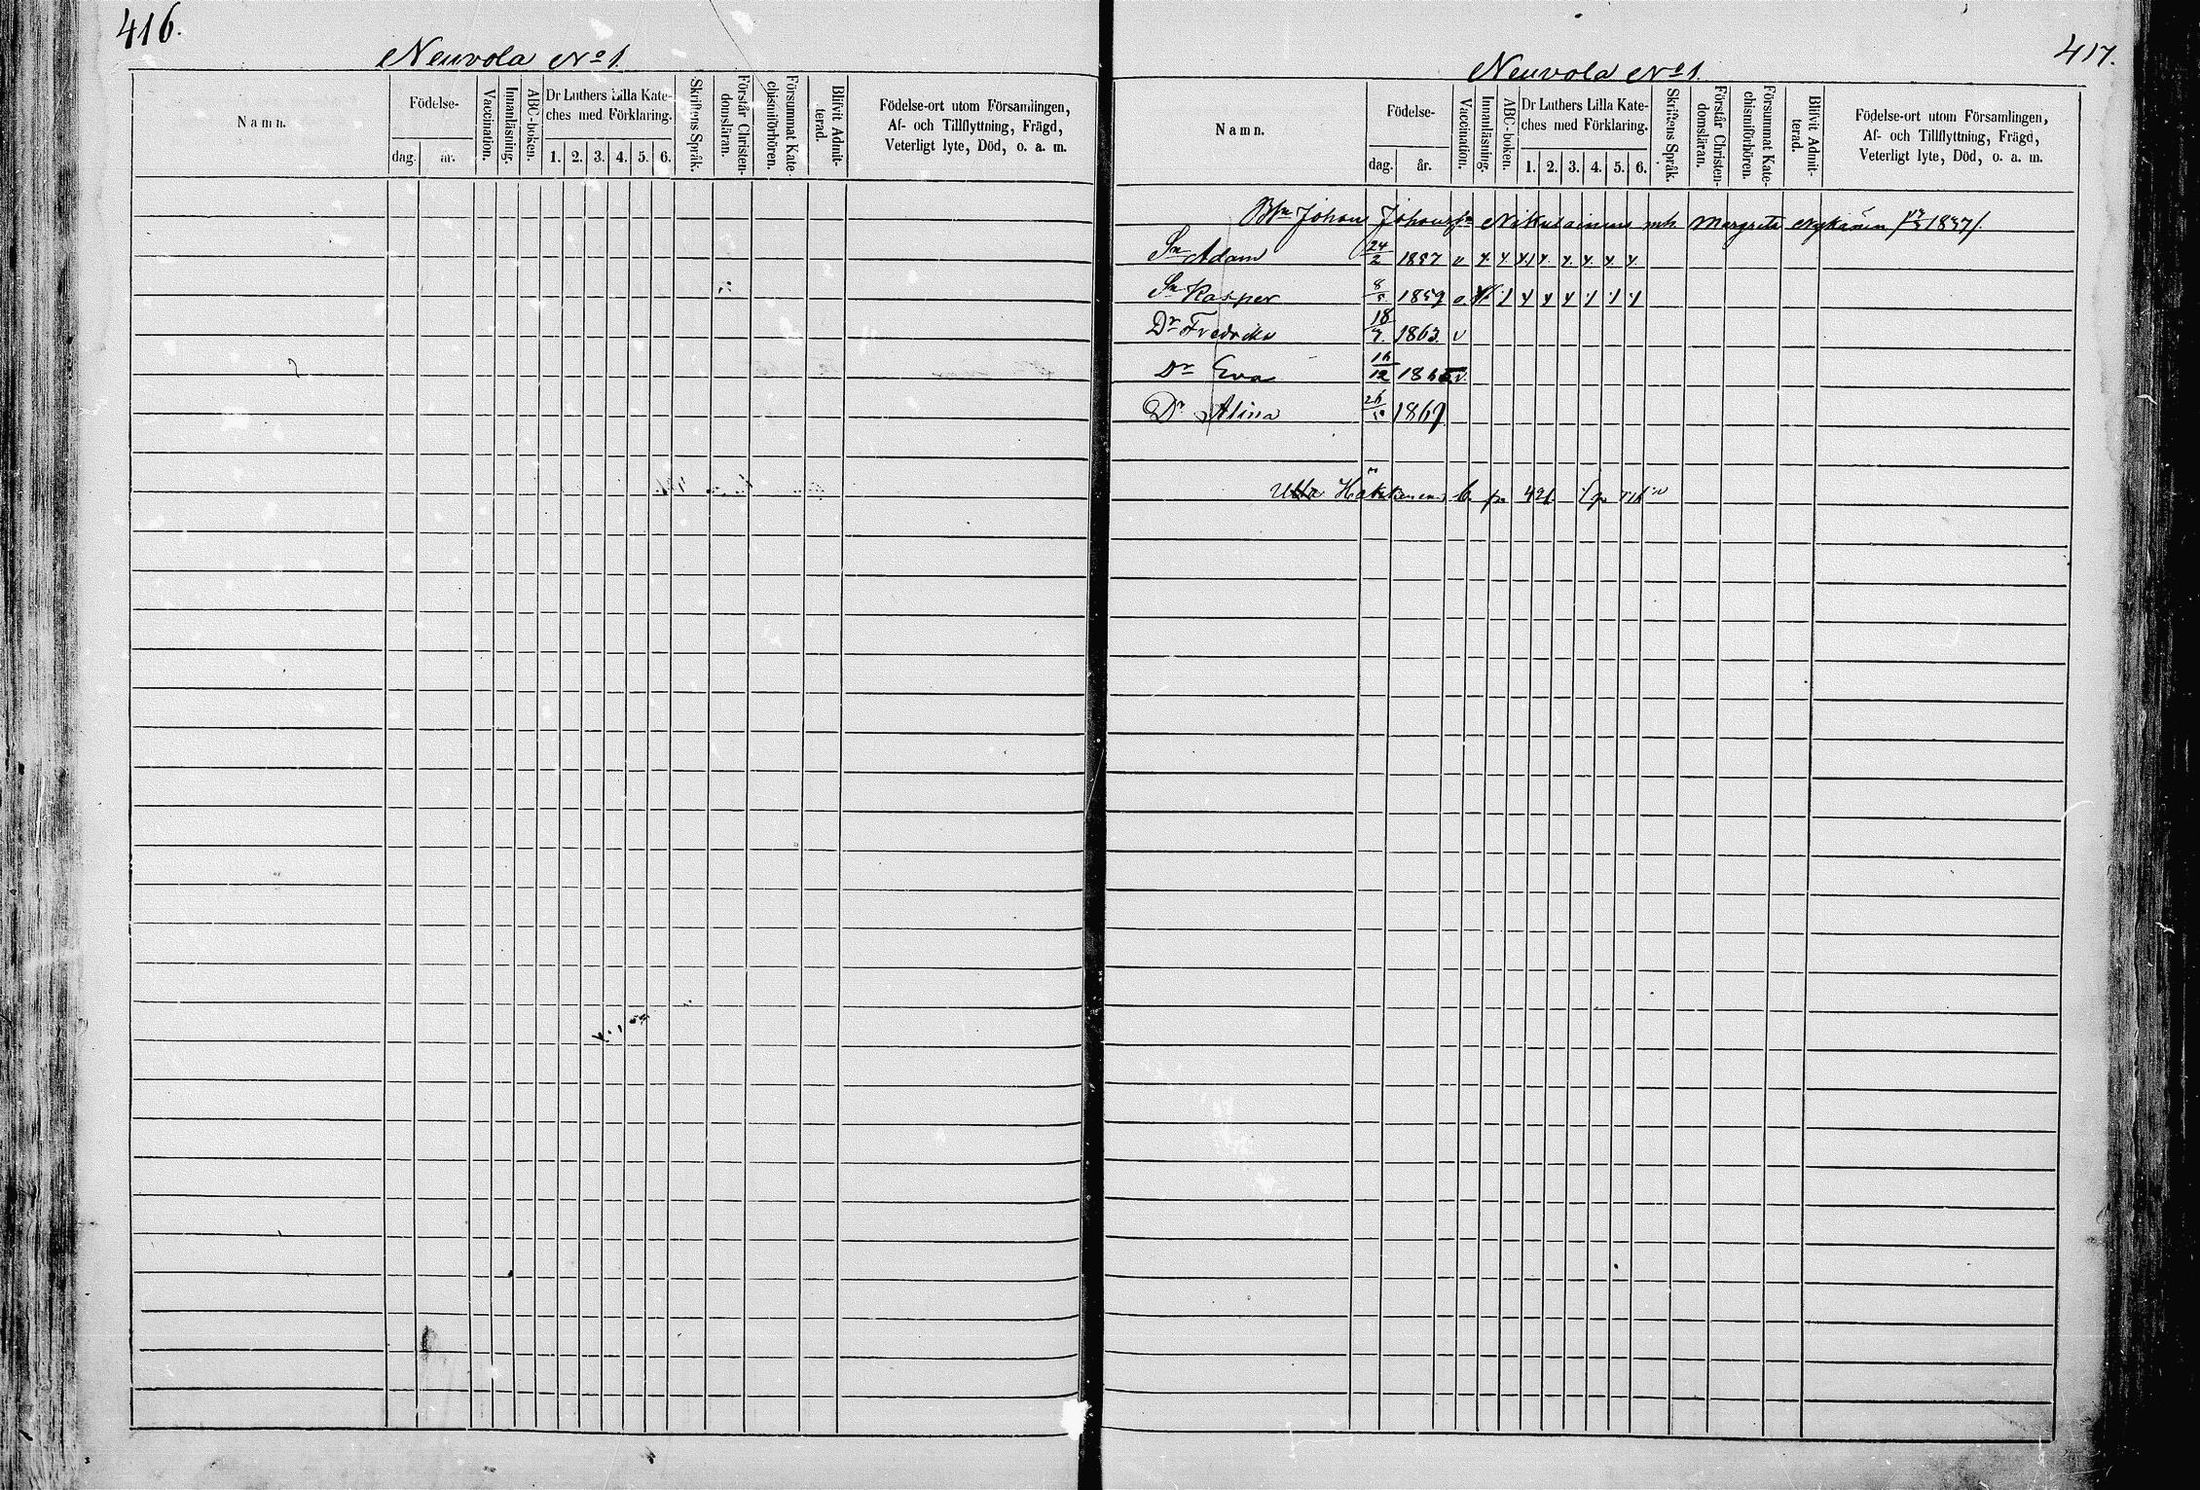 416.
Neuvola No 1.
Namn.
Födelse-
dag.
år.
Vaccination.
Innanläsning.
ABC-boken.
Dr Luthers Lilla Kate-
ches med Förklaring.
1. 2. 3. 4. 5. 6.
Skriftens Språk.
Förstår Christen-
domsläran.
Försummat Kate-
chismiförhören.
Blifvit Admit-
terad.
Födelse-ort utom Församlingen,
Af- och Tillflyttning, Frägd,
Veterligt lyte, Död, o. a. m.
417.
Neuvola No 1.
Namn.
Födelse-
dag.
år.
Vaccination.
Innanläsning.
ABC-boken.
Dr Luthers Lilla Kate-
ches med Förklaring.
1. 2. 3. 4. 5. 6.
Skriftens Språk.
Förstår Christen-
domsläran.
Försummat Kate-
chismiförhören.
Blifvit Admit-
terad.
Födelse-ort utom Församlingen,
Af- och Tillflyttning, Frägd,
Veterligt lyte, Död, o. a. m.
Johan Johanss Nikulainens Margreta Nykänen
Sn Adam 24/2 1857 v
Sn Kasper 8/5 1859
Dr Fredrika 18/7 1863 v
Dr Eva /12
Dr Alina 26/ 1867
Ulla Häkkinen 421